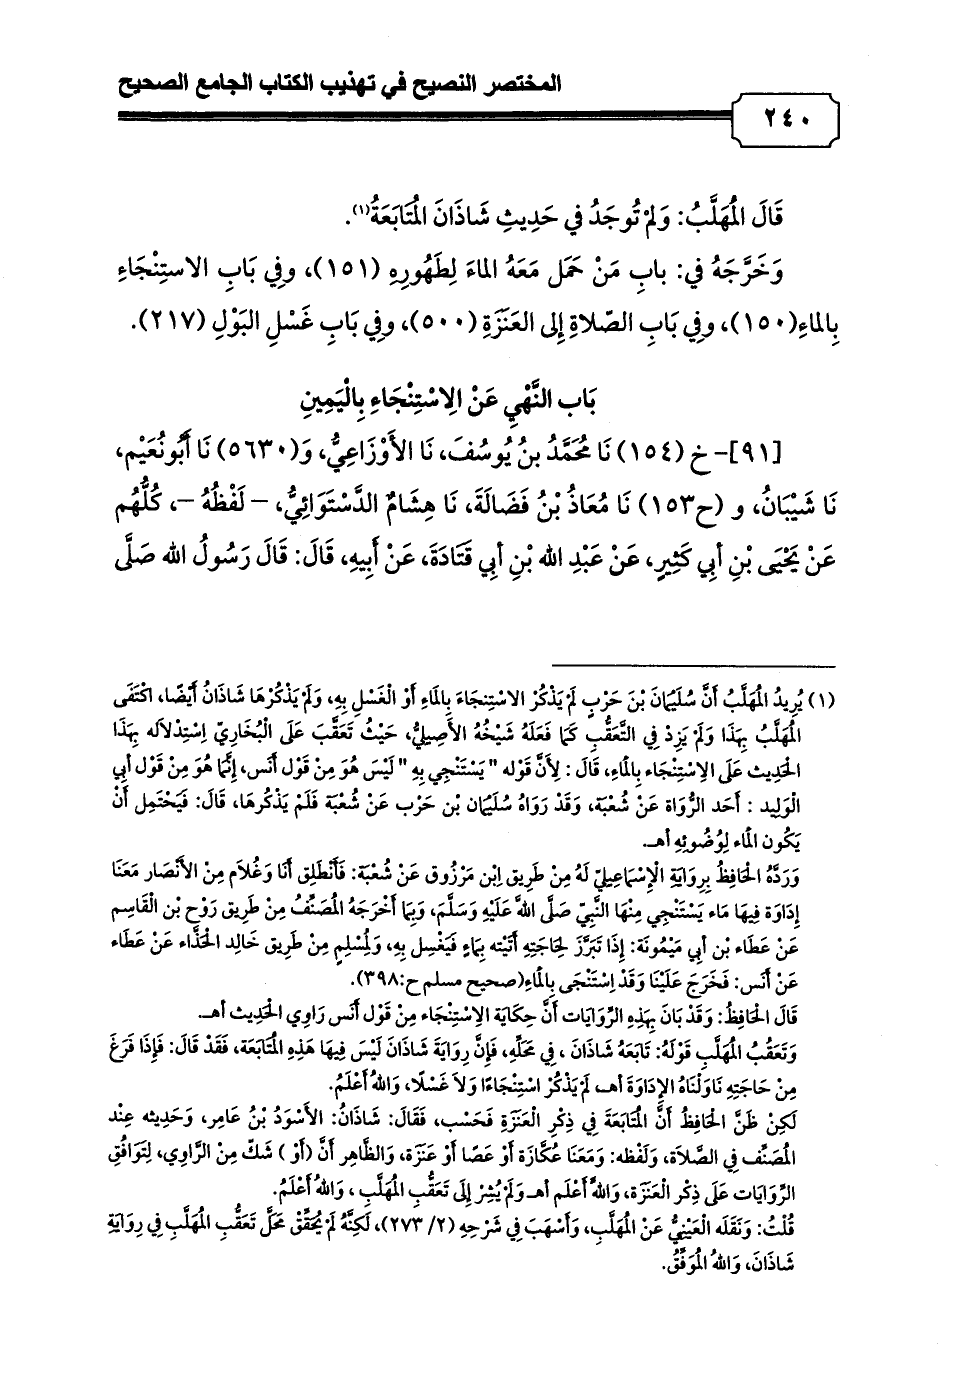 المختصر النصيح في تهذيب الكتاب الجامع الصحيح
٢٤٠
قَالَ المُهَلَّبُ: وَلَمْ تُوجَدُ في حَدِيثِ شَاذَانَ المُتَابَعَةُ(١).
وَخَرَّجَهُ في: بابِ مَنْ حَمَلَ مَعَهُ الماءَ لِطَهُورِهِ (١٥١)، وفِي بَابِ الاستِنْجَاءِ
بِالماءِ(١٥٠)، وفِي بَابِ الصَّلاةِ إلى العَنَزَةِ (٥٠٠)، وفِي بَابِ غَسْلِ البَوْلِ (٢١٧).
بَاب النَّهْيِ عَنْ الِاسْتِنْجَاءِ بِالْيَمِينِ
[٩١]- خ (١٥٤) نَا مُحَمَّدُ بنُ يُوسُفَ، نَا الأَوْزَاعِيُّ، وَ(٥٦٣٠) نَا أَبُونُعَيْم،
نَا شَيْبَانُ، و (ح١٥٣) نَا مُعَاذُ بْنُ فَضَالَةَ، نَا هِشَامٌ الدَّسْتَوَائِيُّ، – لَفْظُهُ –، كُلُّهُم
عَنْ يَحْيَى بْنِ أبِي كَثِيرٍ، عَنْ عَبْدِ الله بْنِ أبِي قَتَادَةَ، عَنْ أَبِيهِ، قَالَ: قَالَ رَسُولُ الله صَلَّى
(١) يُرِيدُ المُهَلَّبُ أَنَّ سُلَيْمَانَ بْنَ حَرْبٍ لَمْ يَذْكُرْ الاسْتِنجَاءَ بِالمَاءِ أَوْ الْغَسْلِ بِهِ، وَلَمْ يَذْكُرْهَا شَاذَانُ أيْضًا، اكْتَفَى
المُهَلَّبُ بِهَذَا وَلَمْ يَزِدْ فِي التَّعَقُّبِ كَمَا فَعَلَهُ شَيْخُهُ الأَصِيلِيُّ، حَيْثُ تَعَقَّبَ عَلَى الْبُخَارِيّ اِسْتِدْلاله بِهَذَا
الحَدِيث عَلَى الِاسْتِنْجَاء بِالمَاءِ، قَالَ : لِأَنَّ قَوْله " يَسْتَنْجِي بِهِ " لَيْسَ هُوَ مِنْ قَوْل أَنَس، إِنَّمَا هُوَ مِنْ قَوْل أَبِي
الْوَلِيد : أَحَد الرُّوَاة عَنْ شُعْبَة، وَقَدْ رَوَاهُ سُلَيْمَان بْن حَرْب عَنْ شُعْبَة فَلَمْ يَذْكُرهَا، قَالَ: فَيَحْتَمِل أَنْ
يَكُون المَاء لِوُضُوئِهِ أهـ.
وَرَدَّهُ الحَافِظُ بِرِوَايَةِ الْإِسْمَاعِيلِيّ لَهُ مِنْ طَرِيق اِبْن مَرْزُوق عَنْ شُعْبَة: فَأَنْطَلِق أَنَا وَغُلَام مِنْ الأَنْصَار مَعَنَا
إِدَاوَة فِيهَا مَاء يَسْتَنْجِي مِنْهَا النَّبِيّ صَلَّى اللهُ عَلَيْهِ وَسَلَّمَ، وَبِمَا أَخْرَجَهُ المُصَنِّفُ مِنْ طَرِيق رَوْح بْن الْقَاسِم
عَنْ عَطَاء بْن أَبِي مَيْمُونَة: إِذَا تَبَرَّزَ لِحَاجَتِهِ أَتَيْته بِمَاءٍ فَيَغْسِل بِهِ، وَلِمُسْلِمٍ مِنْ طَرِيق خَالِد الحَذَّاء عَنْ عَطَاء
عَنْ أَنَس: فَخَرَجَ عَلَيْنَا وَقَدْ اِسْتَنْجَى بِالمَاءِ(صحيح مسلم ح:٣٩٨).
قَالَ الحَافِظُ: وَقَدْ بَانَ بِهَذِهِ الرِّوَايَات أَنَّ حِكَايَة الِاسْتِنْجَاء مِنْ قَوْل أَنَس رَاوِي الحَدِيث أهـ.
وَتَعَقُّبُ المُهَلَّبِ قَوْلَهُ: تَابَعَهُ شَاذَانَ ، فِي مَحَلِّهِ، فَإِنَّ رِوَايَةَ شَاذَانَ لَيْسَ فِيهَا هَذِهِ المُتَابَعَة، فَقَدْ قَالَ: فَإِذَا فَرَغَ
مِنْ حَاجَتِهِ نَاوَلْنَاهُ الإِدَاوَةَ أهـ لَمْ يَذْكُرْ اسْتِنْجَاءًا وَلاَ غَسْلًا، وَاللهُ أَعْلَمُ.
لَكِنْ ظَنَّ الحَافِظُ أَنَّ المُتَابَعَةَ فِي ذِكْرِ الْعَنَزَةِ فَحَسْب، فَقَالَ: شَاذَانُ: الأَسْوَدُ بْنُ عَامِر، وَحَدِيثه عِنْد
المُصَنِّف فِي الصَّلَاة، وَلَفْظه: وَمَعَنَا عُكَّازَة أَوْ عَصًا أَوْ عَنَزَة، وَالظَّاهِر أَنَّ (أَوْ ) شَكّ مِنْ الرَّاوِي، لِتَوَافُقِ
الرِّوَايَات عَلَى ذِكْر الْعَنَزَة، وَاللهُ أَعْلَم أهـ وَلَمْ يُشِرْ إِلَى تَعَقُّبِ المُهَلَّبِ ، وَاللهُ أَعْلَمُ.
قُلْتُ: وَنَقَلَه الْعَيْنِيُّ عَنْ المُهَلَّبِ، وَأَسْهَبَ فِي شَرْحِهِ (٢/ ٢٧٣)، لَكِنَّهُ لَمْ يُحَقِّقْ مَحَلَّ تَعَقُّبِ المُهَلَّبِ فِي رِوَايَةِ
شَاذَانَ، وَاللهُ المُوَفِّقُ.